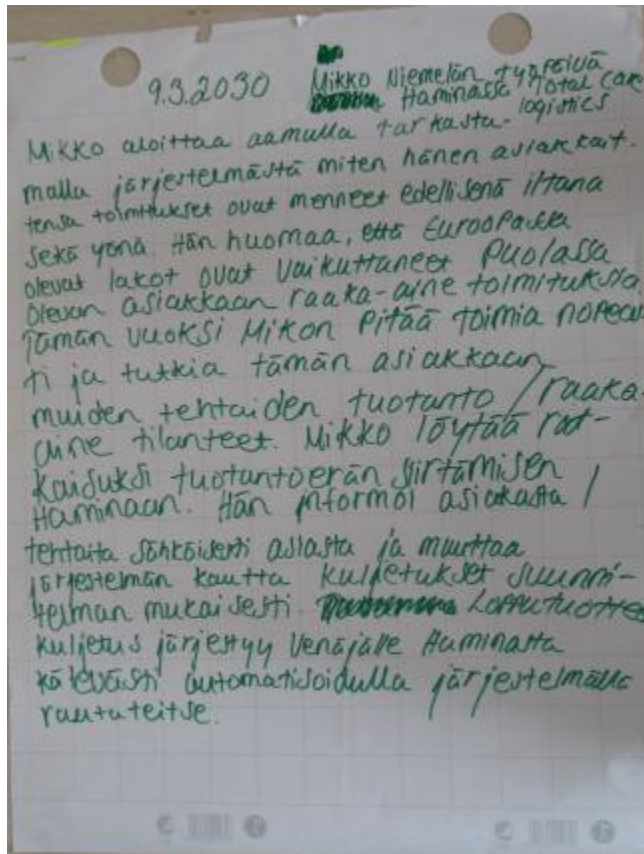 9.3.2030 Mikko Niemelän työpäivä
Haminassa Total care
logistics
Mikko aloittaa aamulla tarkasta-
malla järjestelmästä miten hänen asiakkait-
tensa toimitukset ovat menneet edellisenä iltana
sekä yönä. Hän huomaa, että Euroopassa
olevat lakot ovat vaikuttaneet Puolassa
olevan asiakkaan raaka-aine toimituksia.
Tämän vuoksi Mikon pitää toimia nopeas
ti ja tutkia tämän asiakkaan
muiden tehtaiden tuotanto / raaka-
aine tilanteet. Mikko löytää rat-
kaisuksi tuotantoerän siirtämisen
Haminaan. Hän informoi asiakasta /
tehtaita sähköisesti asiasta ja muuttaa
järjestelmän kautta kuljetukset suunni-
telman mukaisesti. Lopputuottee
kuljetus järjestyy Venäjälle Haminasta
kätevästi automatisoidulla järjestelmällä
rautateitse.